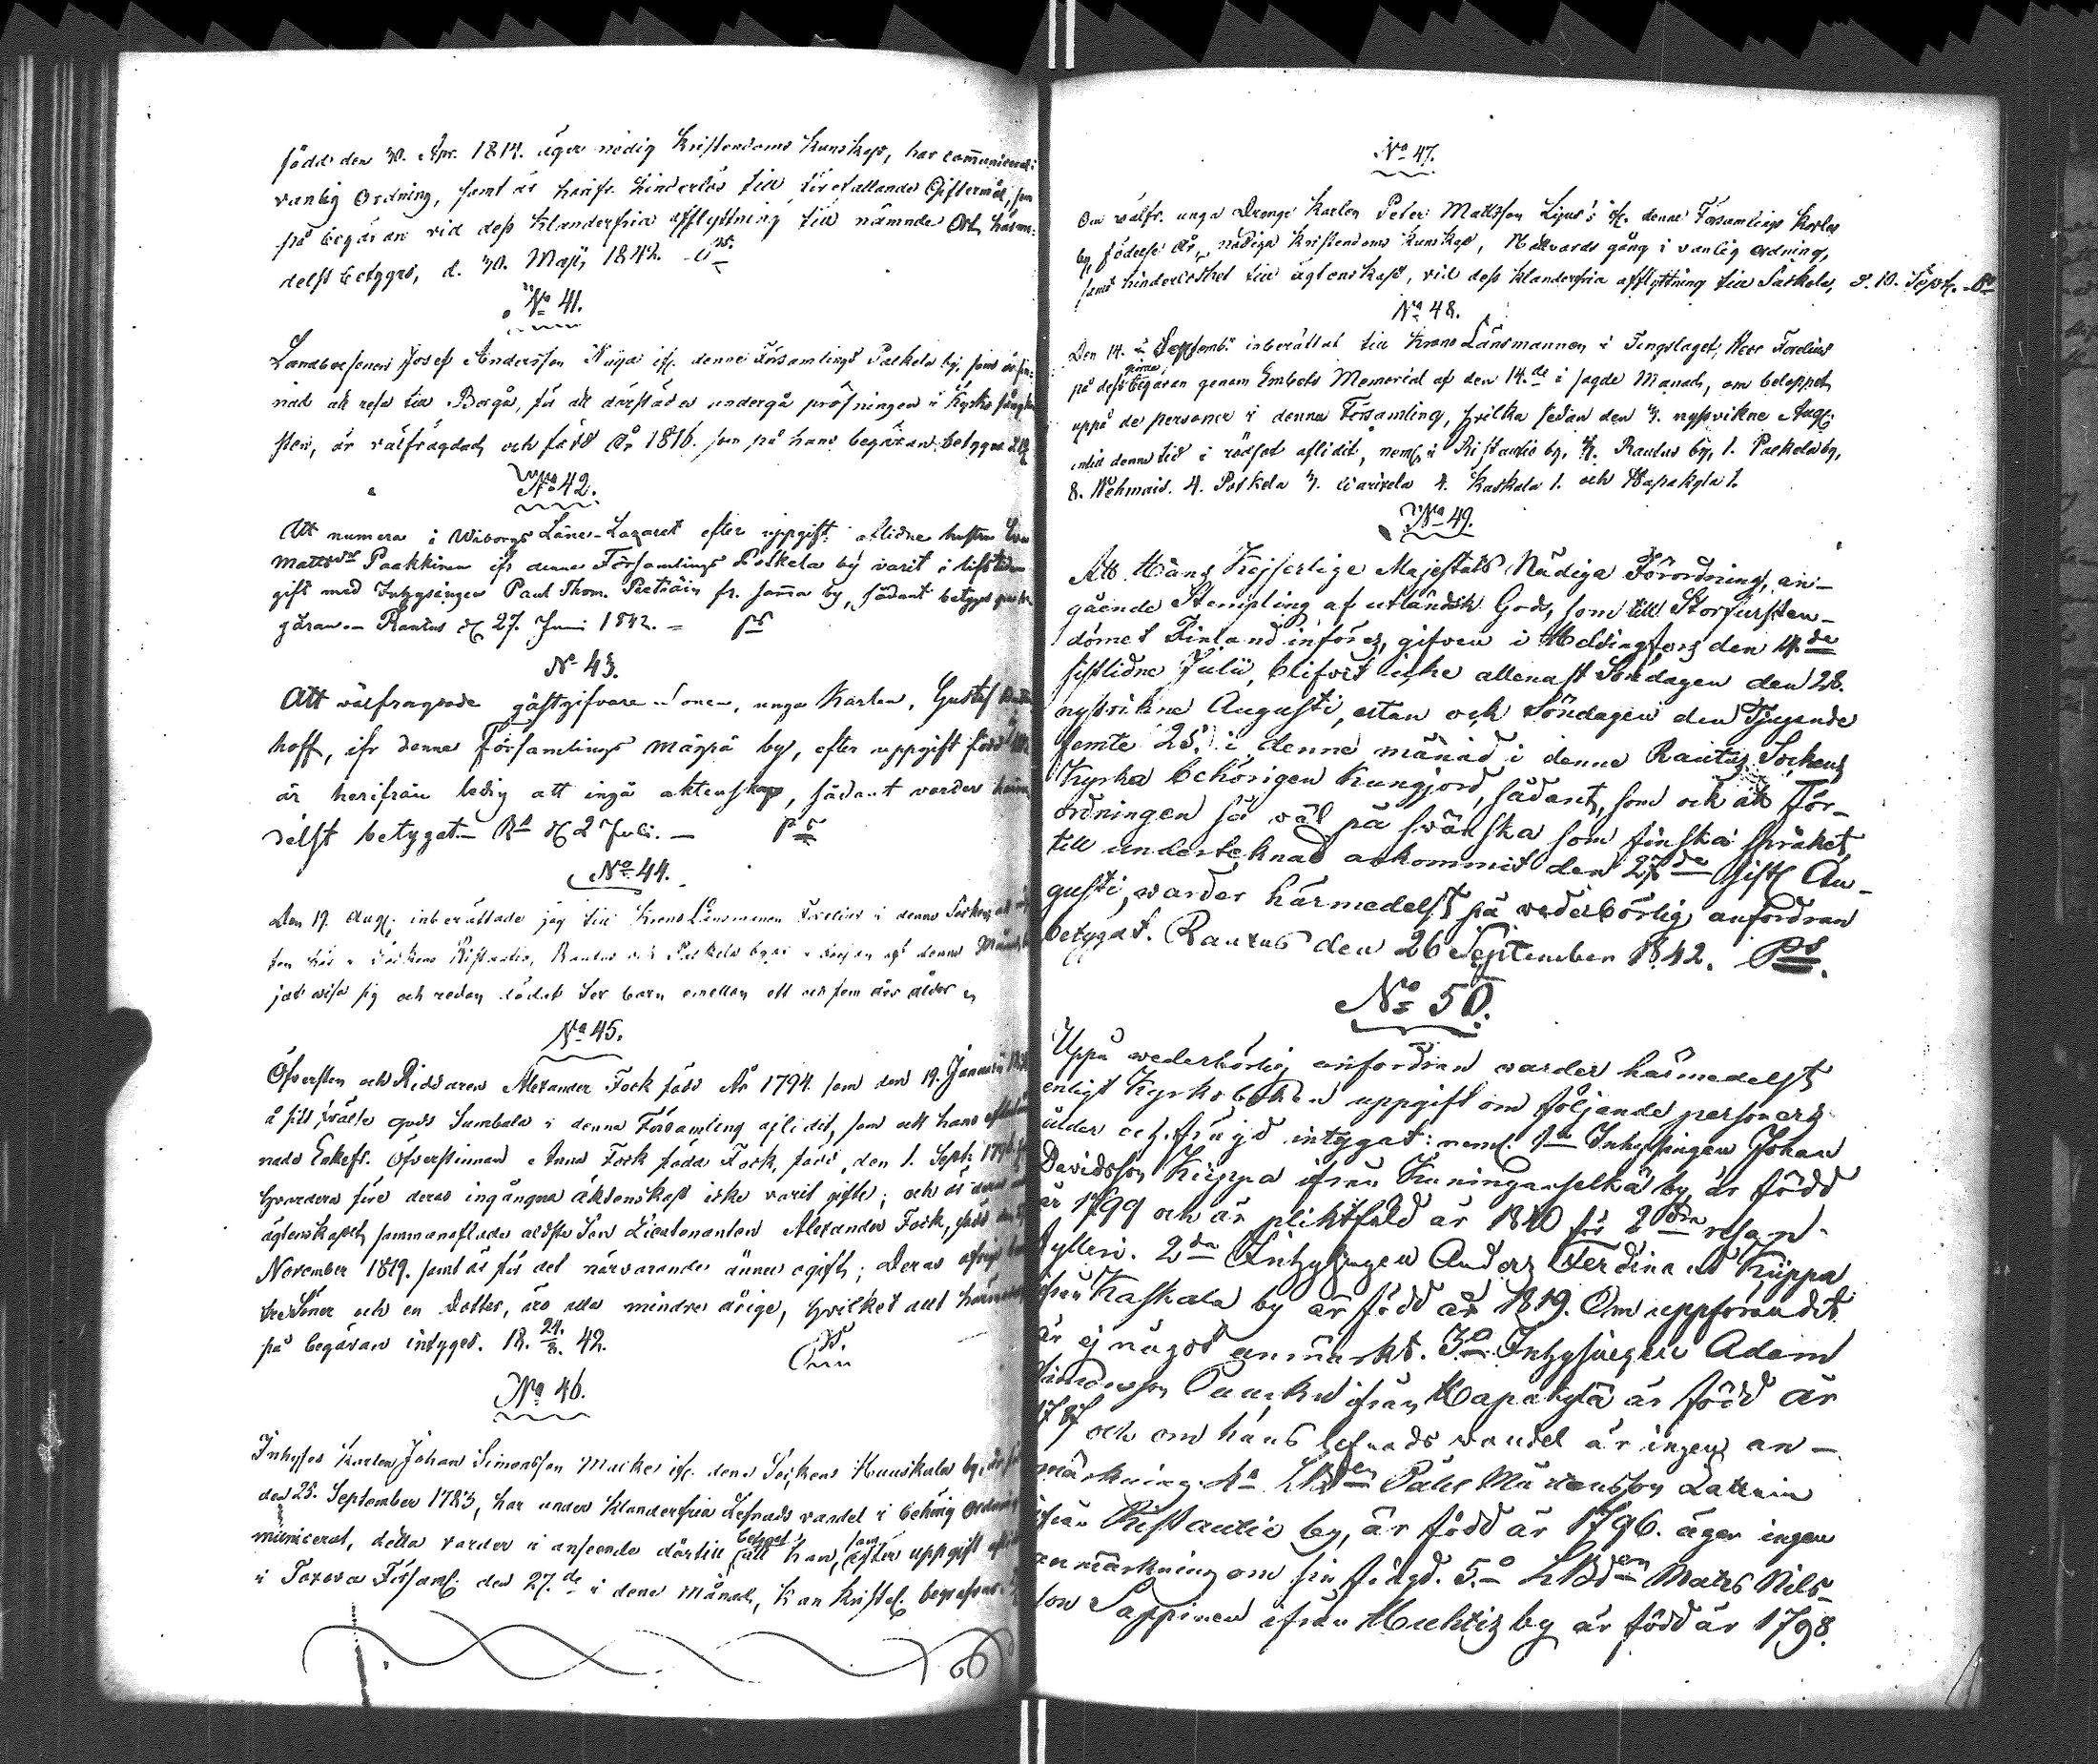 född den 30. Apr. 1814. äger nödig Kristendoms Kunskap, har communicerat i
vanlig Ordning, samt är härifr. hinderlös till förefallande Giftermål, som
på begäran vid dess klanderfria afflyttning till nämnde Ort, härme-
delst betygas, d. 30. Maji, 1842.
No 41.
Landboesonen Josef Andersson ifr. denne Församlings Palkela by, som är sin-
nad att resa till Borgå, för att därstädes undergå pröfningen i Kyrko sång
sten, är välfrägdad, och född År 1816. som på hans begäran betygas
No 42.
Att numera i Wiborgs Läns-Lazaret efter uppgift aflidne hustru Eva
Mattsdr Paakkinen ifr denne Församlings Palkela by varit i lifstiden
gift med Inhysingen Paul Thom. fr. samma by, sådant betygas på be-
gäran. Rautus d. 27. Juni 1842. Ps
No 43.
Att välfrägdade gästgifvare sonen, unga Karlen, Gustaf
hoff, ifr denne Församlings by, efter uppgift född
är herifrån ledig att ingå äktenskap, sådant varder härme
delst betygat. Rs d. 2 Juli. Ps
No 44.
Den 19. Aug. inberättade jag till KronoLänsmannen Forelius i denne Socken, att
ten här i Sockens Ristautio, Rautus och Palkela byar i början af denne Månad
jat visa sig och redan dödat Sex barn emellan ett och fem års ålder
No 45.
Öfversten och Riddaren Alexander Fock född År 1794. som den 19. Januarii
å sitt frälse gods Sumbala i denne Församling aflidit, som ock hans efterläm
nade Enkefr. Öfverstinnan Anna Fock födde Fock, född, den 1. Sept.
hvardera före deras ingångna äktenskap icke varit gifte; och är deras
ägtenskapet sammanaflade äldste Son Lieutenanten Alexander Fock, född
November 1819. samt är för det närvarande ännu ogift; Deras öfriga
tre Söner och en dotter, äro alla minder årige, hvilket allt härmedelst
på begäran intygas. 18. 24/3. 42.
No 46.
Inhyses Karlen Johan Simonsson ifr. denne Sockens Huuskala by, är född
den 25. September 1783, har under klanderfria Lefnads vandel i behörig Ordning
municerat, detta varder i anseende därtill betygat, att han, som efter uppgift aflidit
i Församl. den 27.de i denne Månad, kan Kristel. begrafvas.
No 47.
Om välfr. unga Drenge Karlen Peter Mattsson ifr. denne Församlings Korles
by, födelse År, nödiga Kristendoms Kunskap, Nattvards gång i vanlig ordning,
samt hinderlöshet till ägtenskap, vid dess klanderfria afflyttning till Sakkola, d. 10. Sept.
No 48.
Den 14. September inberättat till KronoLänsmannen i Tingslaget, Herr Forelius
på dess begäran genom Embets Memorial af den 14.de i sagde Månad, om beloppet
uppå de personer i denna Församling, hvilka sedan den 3. nyssvikne Aug.
intill denna tid i rödsot aflidit, neml. i Ristautio by, Rautus by, 1. Palkela by,
8. Wehmais. 4. Potkela 3. 4. Kaskala 1. och Hapakylä 1.
No 49.
Att Hans Kejserlige Majestäts Nådiga Förordning, an-
gående Stempling af utländsk Gods, som till Storfursten-
dömet Finland införes, gifven i Helsingfors den 14.de
sistlidne Julii, blifvit icke allenast Söndagen den 28.
nyssvikne Augusti, utan ock Söndagen den Tjugonde
femte 25. i denne månad i denne Rautus Sockens
Kyrka behörigen Kungjord, sådant, som ock att För-
ordningen så väl på swänska som finska språket,
till undertecknad ankommit den 27de sistl. Au-
gusti, warder härmedelst på wederbörlig anfordran
betygat. Rautus den 26 September 1842. Ps.
No 50.
Uppå wederbörlig anfordran warder härmedelst
enligt Kyrkoboken uppgift om följande personers
ålder och frägd intygat: neml. 1o Inhysingen Johan
Davidsson Kiuppa ifrån Kuninganselkä by, är född
år 1799 och är pliktfäld år 1840 för 2dra resan
fylleri. 2do Inhysingen Anders Ferdinand Kiuppa
ifrån Kaskala by är född år 1819. Om uppförandet
är ej något anmärkt. 3o Inhysingen Adam
ifrån Hapakylä är född år
1787 och om hans lefnads vandel är ingen an-
märkning. 4o LBden Påhl Mårtensson Lattuin
ifrån Ristautio by, är född år 1796. äger ingen
anmärkning om sin frägd. 5.o LBden Matts Nils-
son Sappinen ifrån Huhtis by är född år 1798.